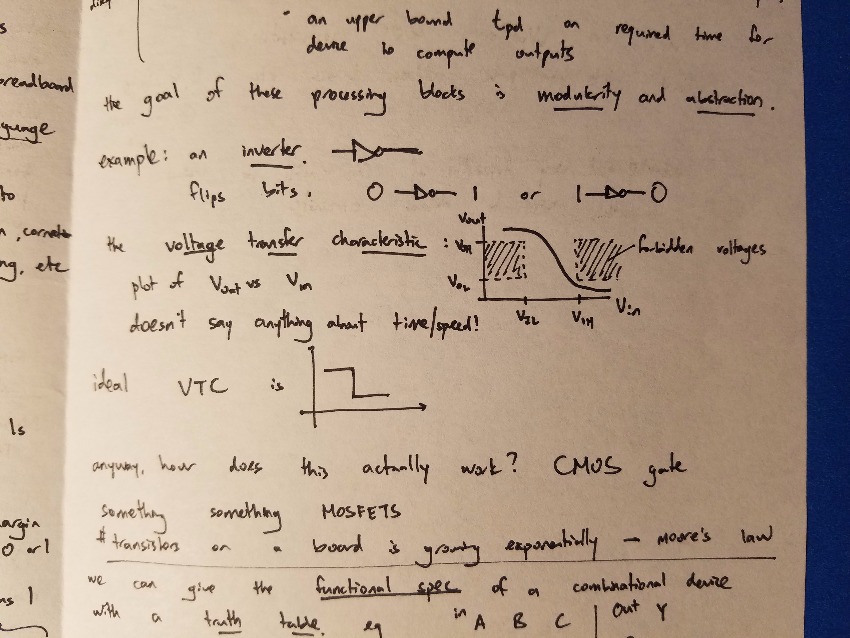 an upper bound tpd on required time for
device to compute outputs
the goal of these processing blocks is modularity and abstraction.
example: an inverter.
flips bits. 0 1 or 1 0
the voltage transfer characteristic:
plot of Vout vs Vin
doesn't say anything about time/speed!
Vout
VOH
VOL
VIL VIH Vin
forbidden voltages
ideal VTC is
anyway, how does this actually work? CMOS gate
something something MOSFETS
# transistors on a board is growing exponentially — Moore's law
we can give the functional spec of a combinational device
with a truth table. eg in A B C | out Y
readboard
guage
to
ng, etc
1s
argin
0 or 1
ns 1